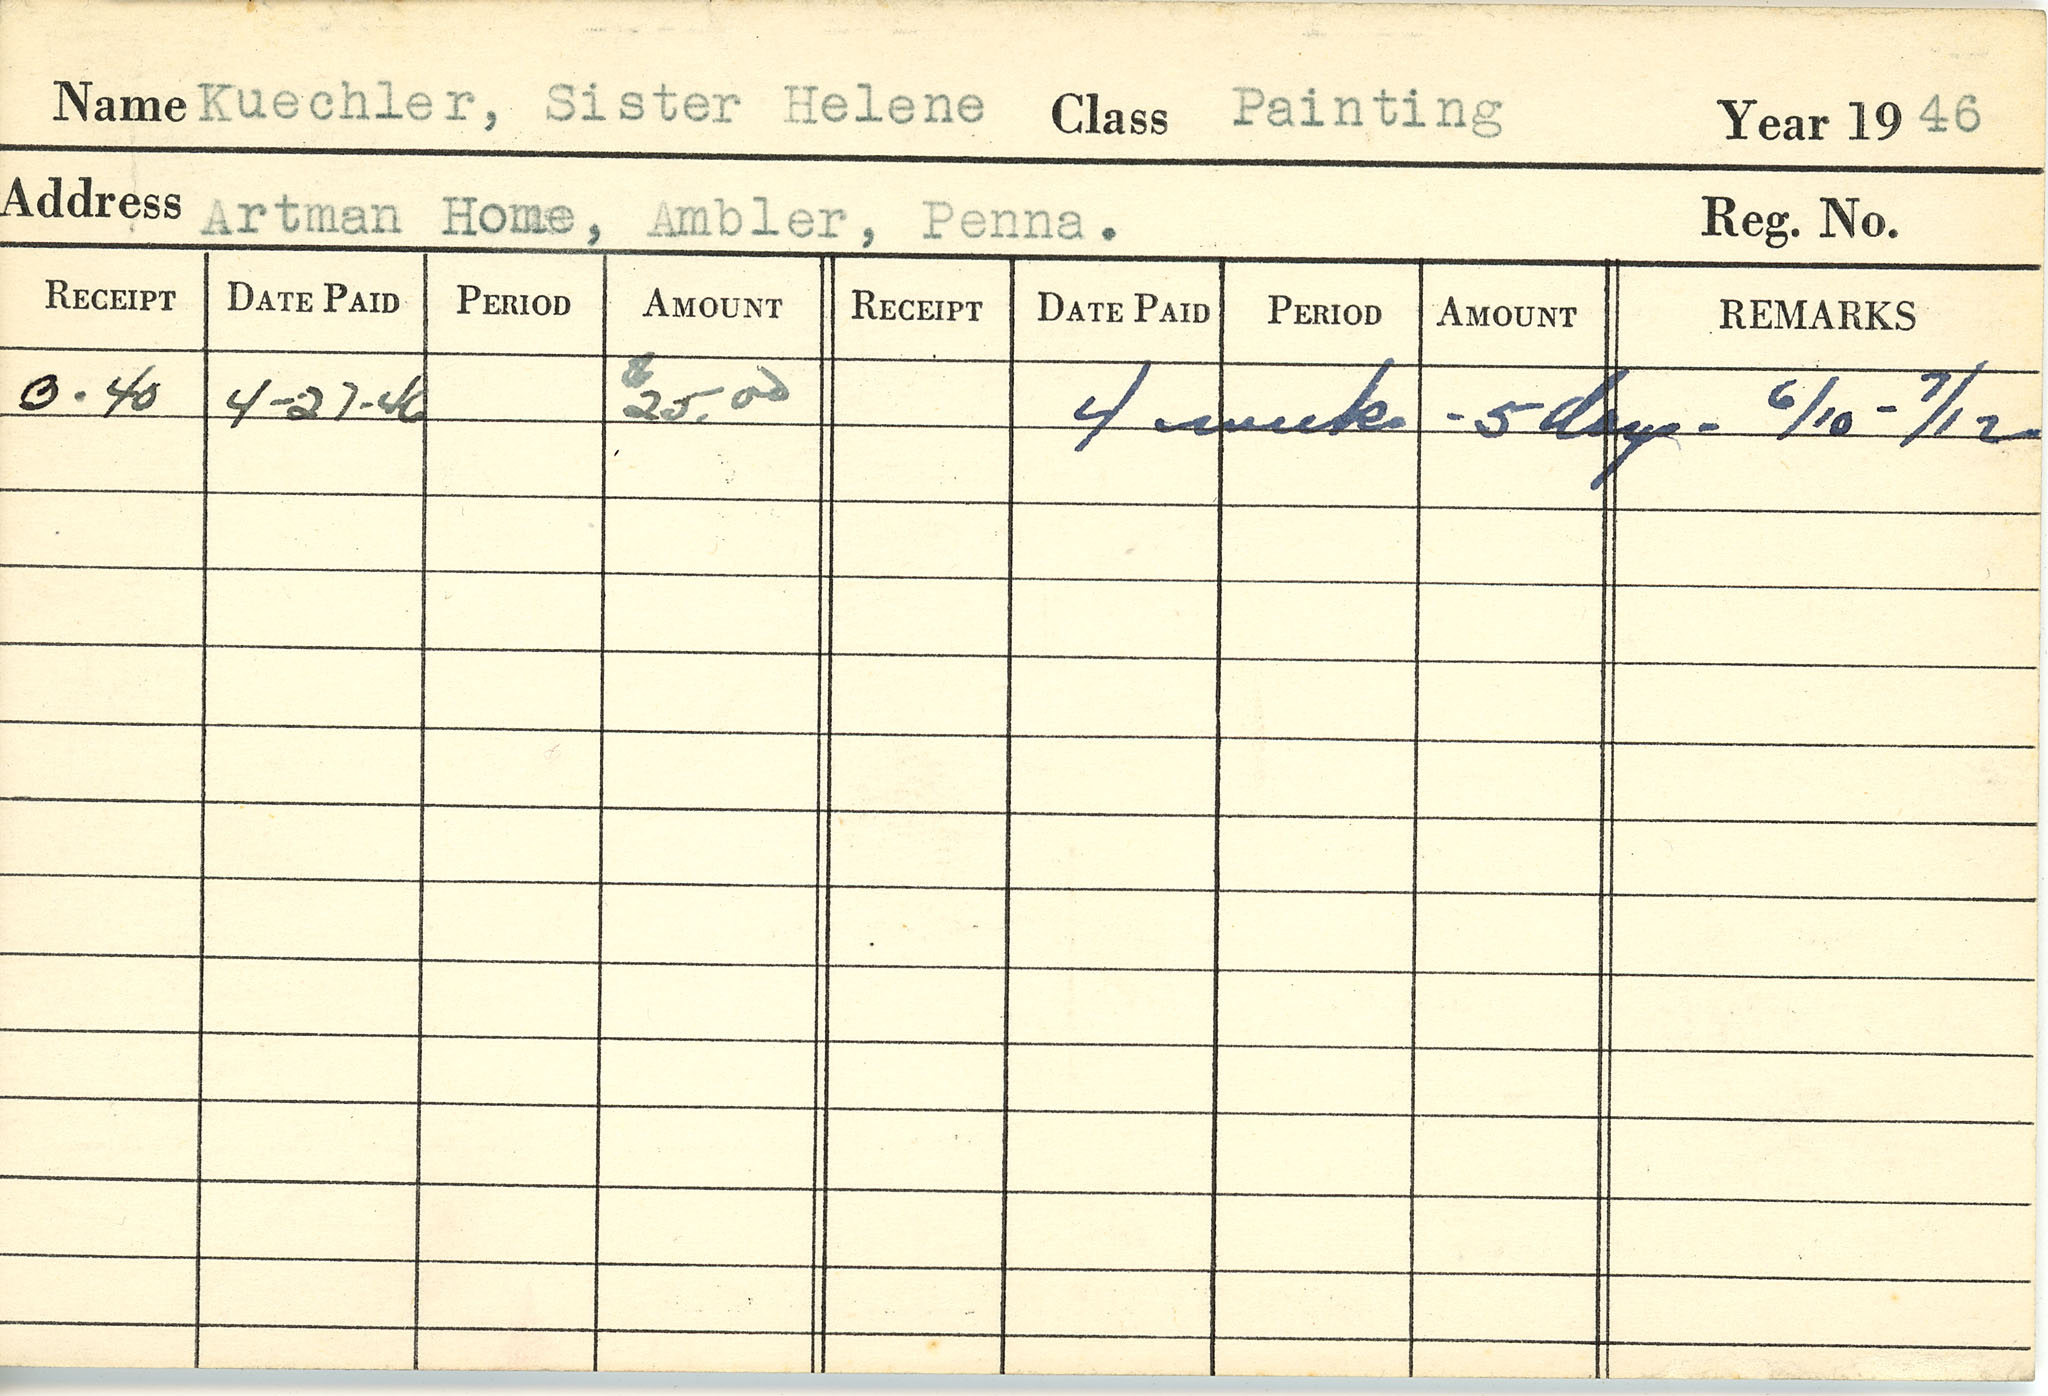 Name Kuechler, Sister Helene Class Painting Year 19 46
Address Artman Home, Ambler, Penna. Reg. No.
RECEIPT DATE PAID PERIOD AMOUNT RECEIPT DATE PAID PERIOD AMOUNT REMARKS
0.40 4-27-46 $25.00 4 weeks - 5 days - 6/10 - 7/12